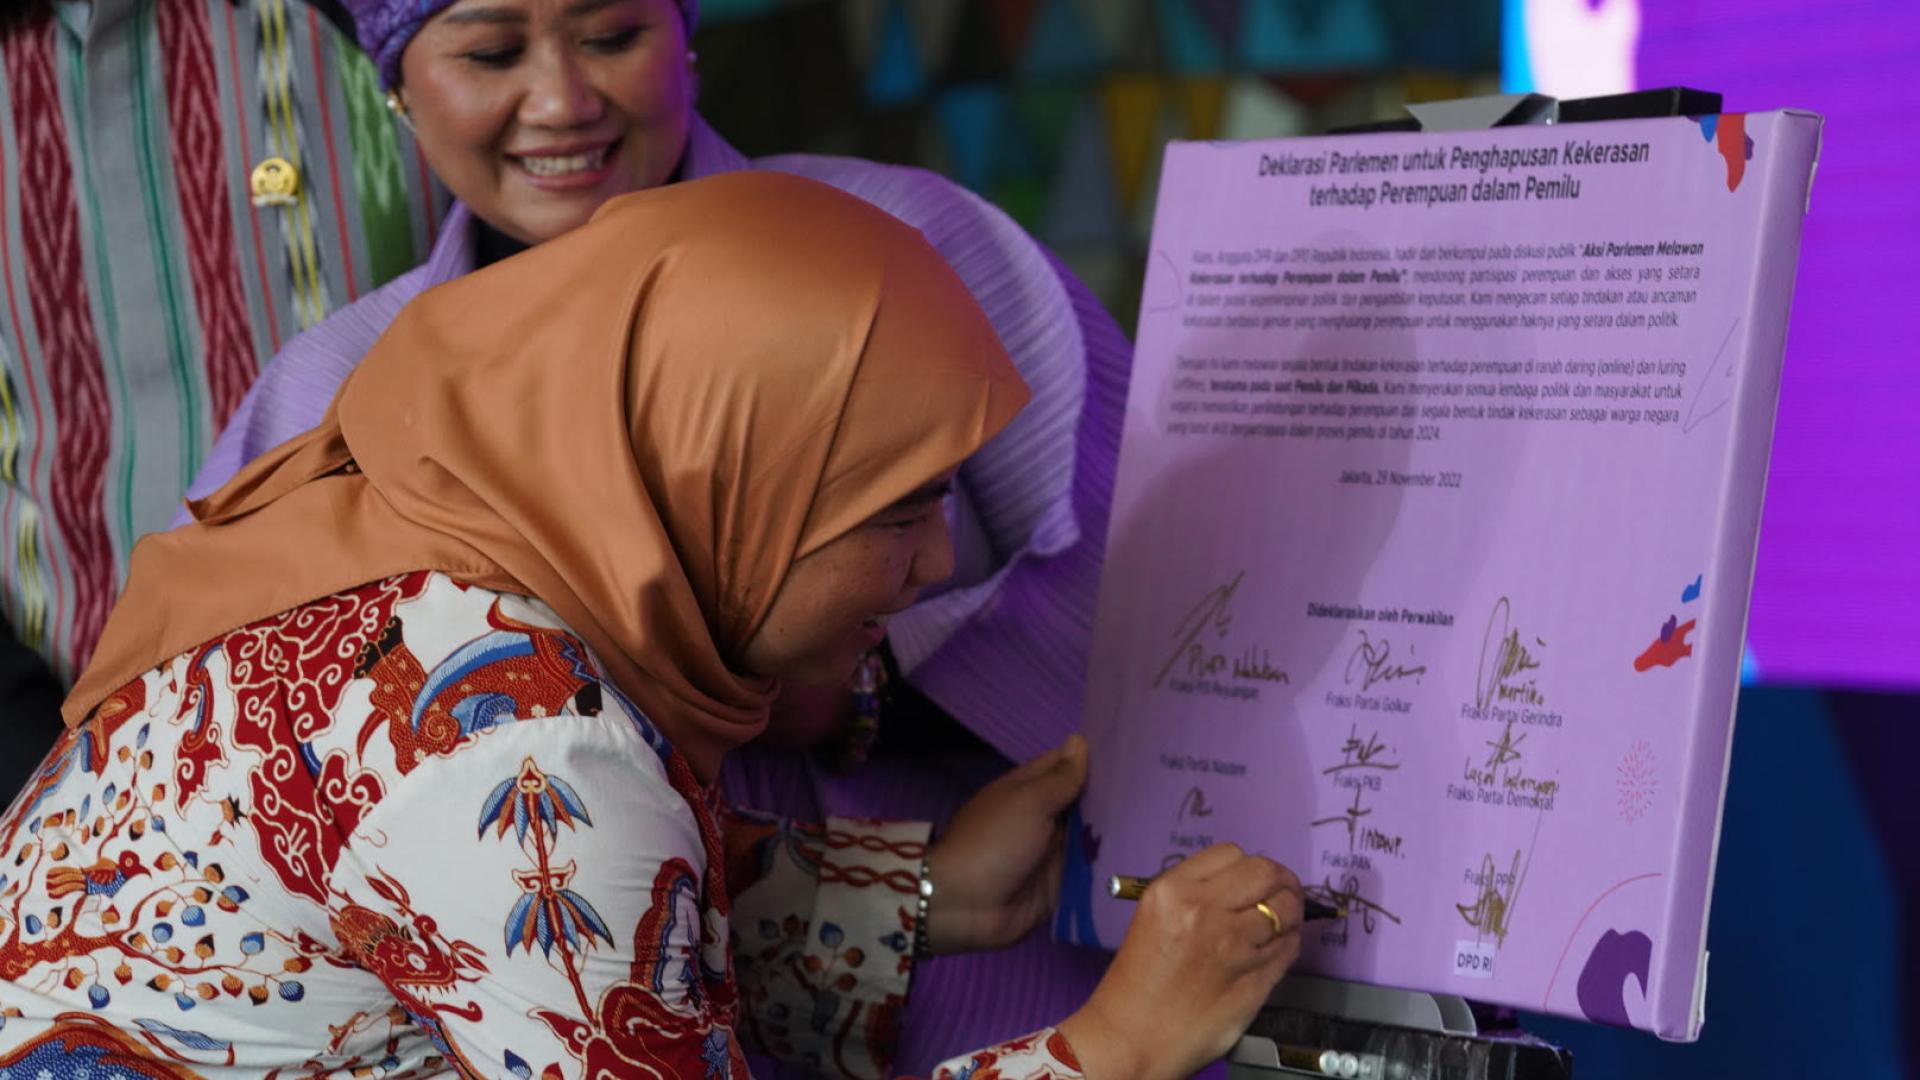 Deklarasi Parlemen untuk Penghapusan Kekerasan
terhadap Perempuan dalam Pemilu
Kami, Anggota DPR dan DPD Republik Indonesia, hadir dan berkumpul pada diskusi publik "Aksi Parlemen Melawan
Kekerasan terhadap Perempuan dalam Pemilu", mendorong partisipasi perempuan dan akses yang setara
di dalam posisi kepemimpinan politik dan pengambilan keputusan. Kami mengecam setiap tindakan atau ancaman
kekerasan berbasis gender yang menghalangi perempuan untuk menggunakan haknya yang setara dalam politik.
Dengan ini kami melawan segala bentuk tindakan kekerasan terhadap perempuan di ranah daring (online) dan luring
(offline), terutama pada saat Pemilu dan Pilkada. Kami menyerukan semua lembaga politik dan masyarakat untuk
segera memastikan perlindungan terhadap perempuan dari segala bentuk tindak kekerasan sebagai warga negara
yang turut aktif berpartisipasi dalam proses pemilu di tahun 2024.
Jakarta, 29 November 2022
Dideklarasikan oleh Perwakilan
Fraksi PDI Perjuangan
Fraksi Partai Golkar
Martina
Fraksi Partai Gerindra
Fraksi Partai Nasdem
Fraksi PKB
Fraksi Partai Demokrat
Fraksi PKS
Fraksi PAN
Fraksi PPP
KPPRI
DPD RI